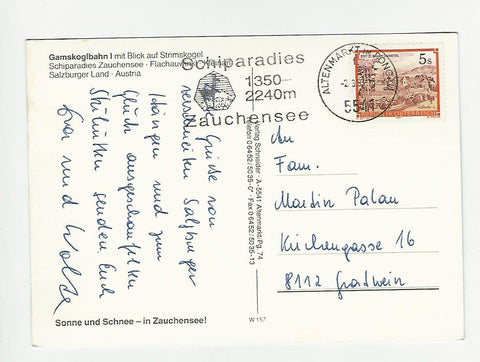 Gamskoglbahn I mit Blick auf Strimskogel
Schiparadies Zauchensee · Flachauwinkl · Kleinarl
Salzburger Land · Austria
Schiparadies
1350—
2240m
Zauchensee
ALTENMARKT IM PONGAU
5541
5s
Grüße von
verschneiten Salzburger
und zum
Glück ausgeschaufelten
Skihütten senden Euch
und
An
Fam.
Martin Palan
Kirchengasse 16
8112 Gratwein
Verlag Schneider · A-5541 Altenmarkt/Pg. 74
Telefon 06452/5035-0 · Fax 06452/5035-13
Sonne und Schnee – in Zauchensee!
W 157